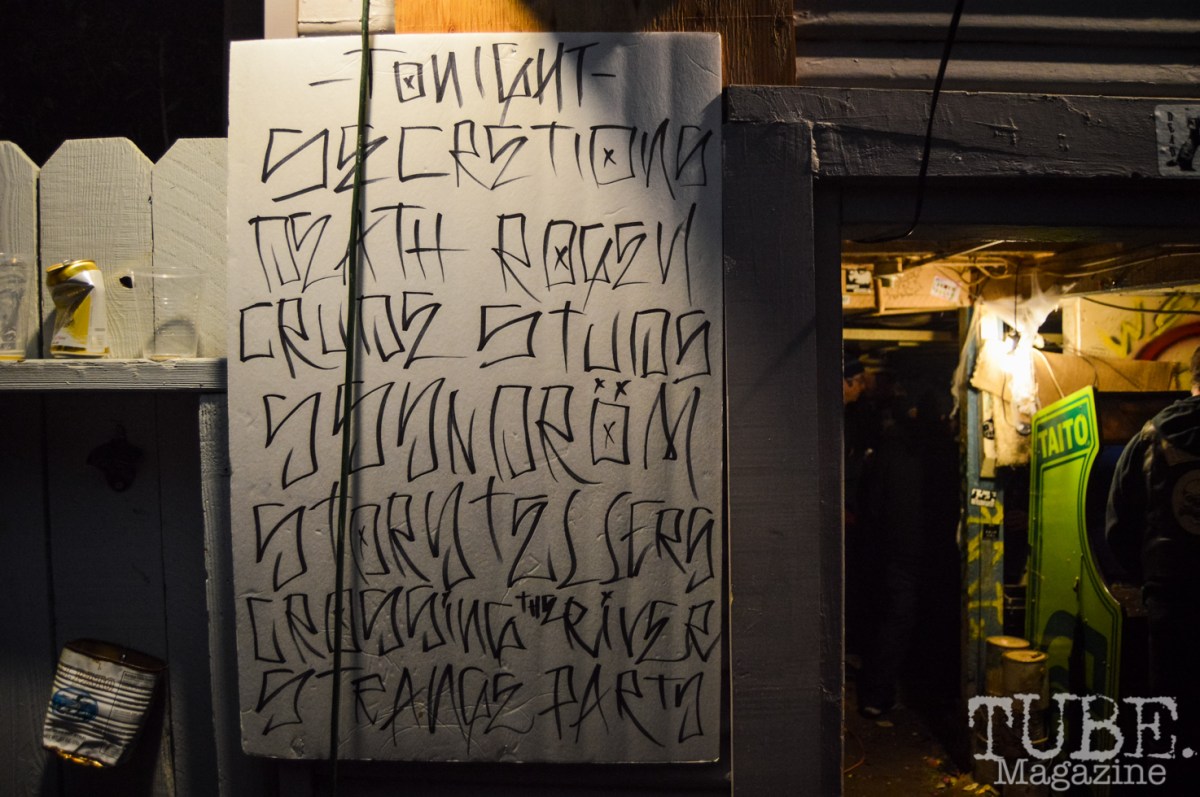 -TONIGHT-
SECRETIONS
DEATH ROGEN
CRUDE STUDS
SSYNDRÖM
STORYTELLERS
CROSSING THE RIVER
STRANGE PARTY
TAITO
TUBE.
Magazine